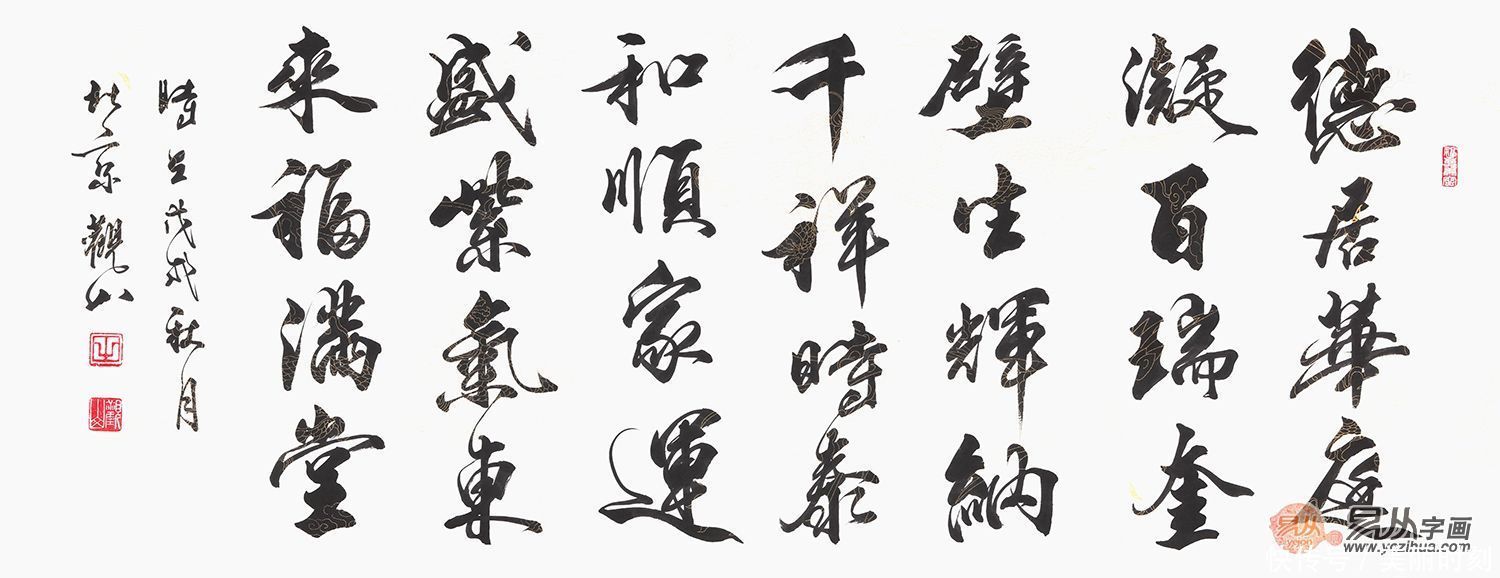 德居華庭
凝百瑞奎
壁生輝納
千祥時泰
和順家運
盛業氣東
來福滿堂
時戊戌秋月
北京觀山
易从字画
www.yczihua.com
快传号 / 美丽时刻